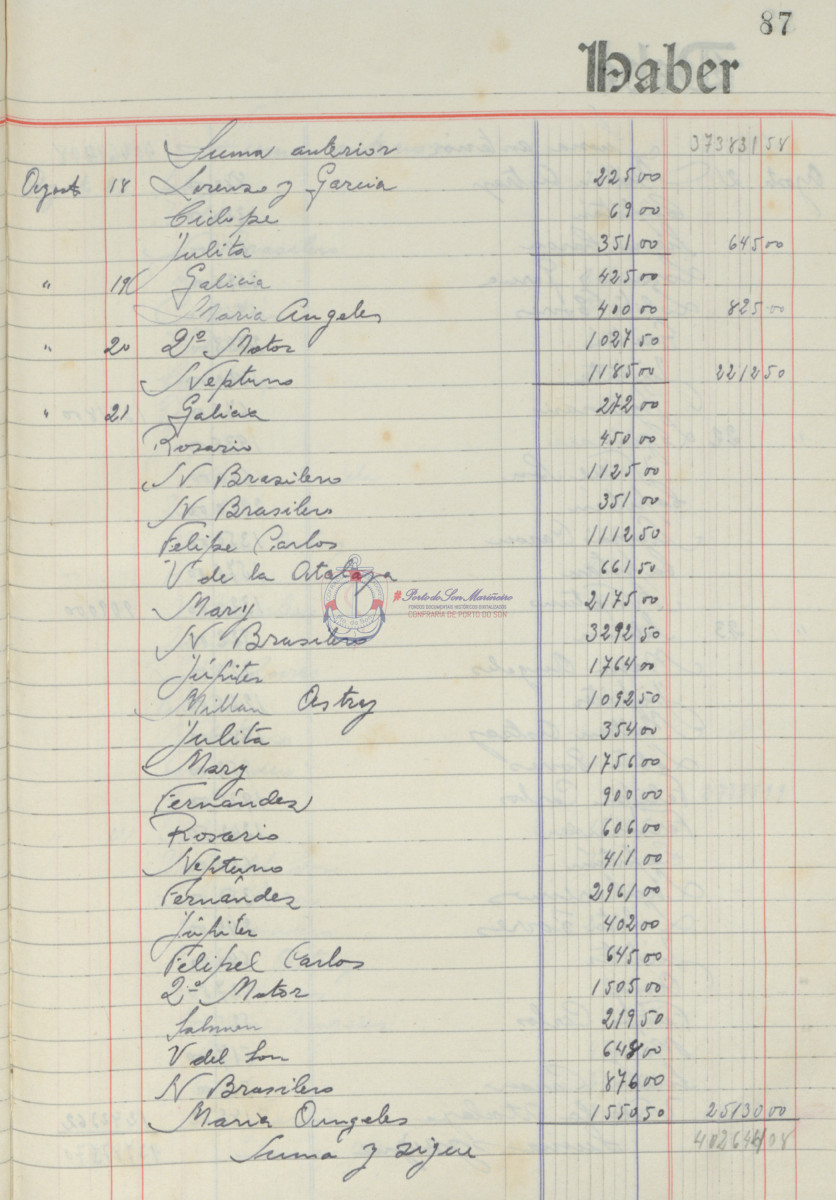 87
Haber
Suma anterior 373831 58
Agosto 18 Lorenzo y Garcia 225 00
Ciclope 69 00
Julita 351 00 645 00
" 19 Galicia 425 00
Maria Angeles 400 00 825 00
" 20 2º Motor 1027 50
Neptuno 1185 00 2212 50
" 21 Galicia 272 00
Rosario 450 00
N Brasilero 1125 00
N Brasilero 351 00
Felipe Carlos 1112 50
V de la Atalaya 661 50
Mary 2175 00
N Brasilero 3292 50
Júpiter 1764 00
Millan Astry 1092 50
Julita 354 00
Mary 1756 00
Fernández 900 00
Rosario 606 00
Neptuno 411 00
Fernandez 2961 00
Júpiter 402 00
Felipel Carlos 645 00
2º Motor 1505 00
219 50
V del Son 00
N Brasilero 876 00
Maria Angeles 1550 50 25130 00
Suma y sigue 402644 08
#PortodoSonMariñeiro
FONDOS DOCUMENTAIS HISTÓRICOS DIXITALIZADOS
CONFRARÍA DE PORTO DO SON